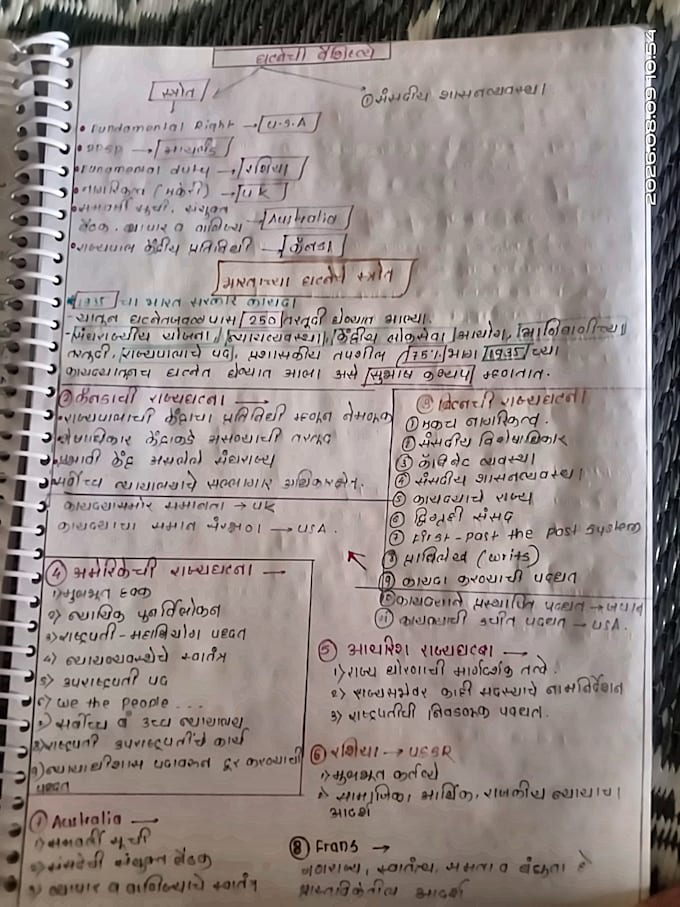 घटनेची वैशिष्ट्ये
स्त्रोत
① संसदीय शासनव्यवस्था
• Fundamental Right → U.S.A
• DPSP → आयर्लंड
• Fundamental duty → रशिया
• नागरिकत्व (एकेरी) → UK
• समवर्ती सूची, संयुक्त
बैठक, व्यापार व वाणिज्य → Australia
• राज्यपाल केंद्रीय प्रतिनिधी → कॅनडा
भारताच्या घटनेचे स्त्रोत
• 1935 चा भारत सरकार कायदा
- यातून घटनेत जवळपास 250 तरतूदी घेण्यात आल्या.
- संघराज्यीय योजना, न्यायव्यवस्था, केंद्रीय लोकसेवा आयोग, आणिबाणीच्या
तरतूदी, राज्यपालाचे पद, प्रशासकीय तपशील (75% भाग 1935 च्या
कायद्यातूनच घटनेत घेण्यात आला असे सुभाष कश्यप म्हणतात.
② कॅनडाची राज्यघटना
• राज्यपालाची केंद्राचा प्रतिनिधी म्हणून नेमणूक
• शेषाधिकार केंद्राकडे असण्याची तरतूद
• प्रभावी केंद्र असलेले संघराज्य
• सर्वोच्च न्यायालयाचे सल्लागार अधिकारक्षेत्र.
कायद्यासमोर समानता → UK
कायद्याचा समान संरक्षण → USA.
③ ब्रिटनची राज्यघटना
① एकच नागरिकत्व.
② संसदीय विशेषाधिकार
③ कॅबिनेट व्यवस्था
④ संसदीय शासनव्यवस्था
⑤ कायद्याचे राज्य
⑥ द्विगृही संसद
⑦ First-past the post system
⑧ प्राधिलेख (writs)
⑨ कायदा करण्याची पद्धत
⑩ कायद्याने प्रस्थापित पद्धत → जपान
⑪ कायद्याची उचीत पद्धत → USA.
④ अमेरिकेची राज्यघटना →
१) मुलभूत हक्क
२) न्यायिक पुनर्विलोकन
३) राष्ट्रपती - महाभियोग पद्धत
४) न्यायव्यवस्थेचे स्वातंत्र
५) उपराष्ट्रपती पद
६) We the people ...
७) सर्वोच्च व उच्च न्यायालय
८) राष्ट्रपती उपराष्ट्रपतींचे कार्य
९) न्यायाधीशास पदावरून दूर करण्याची
पद्धत
⑤ आयरिश राज्यघटना →
१) राज्य धोरणाची मार्गदर्शक तत्वे.
२) राज्यसभेवर काही सदस्यांचे नामनिर्देशन
३) राष्ट्रपतीची निवडणूक पद्धत.
⑥ रशिया → USSR
१) मुलभूत कर्तव्ये
२) सामाजिक, आर्थिक, राजकीय न्यायाचा
आदर्श
⑦ Australia →
१) समवर्ती सूची
२) संसदेची संयुक्त बैठक
३) व्यापार व वाणिज्याचे स्वातंत्र
⑧ Frans →
गणराज्य, स्वातंत्र्य, समता व बंधुता हे
प्रास्ताविकेतील आदर्श
2026.08.09 10:54